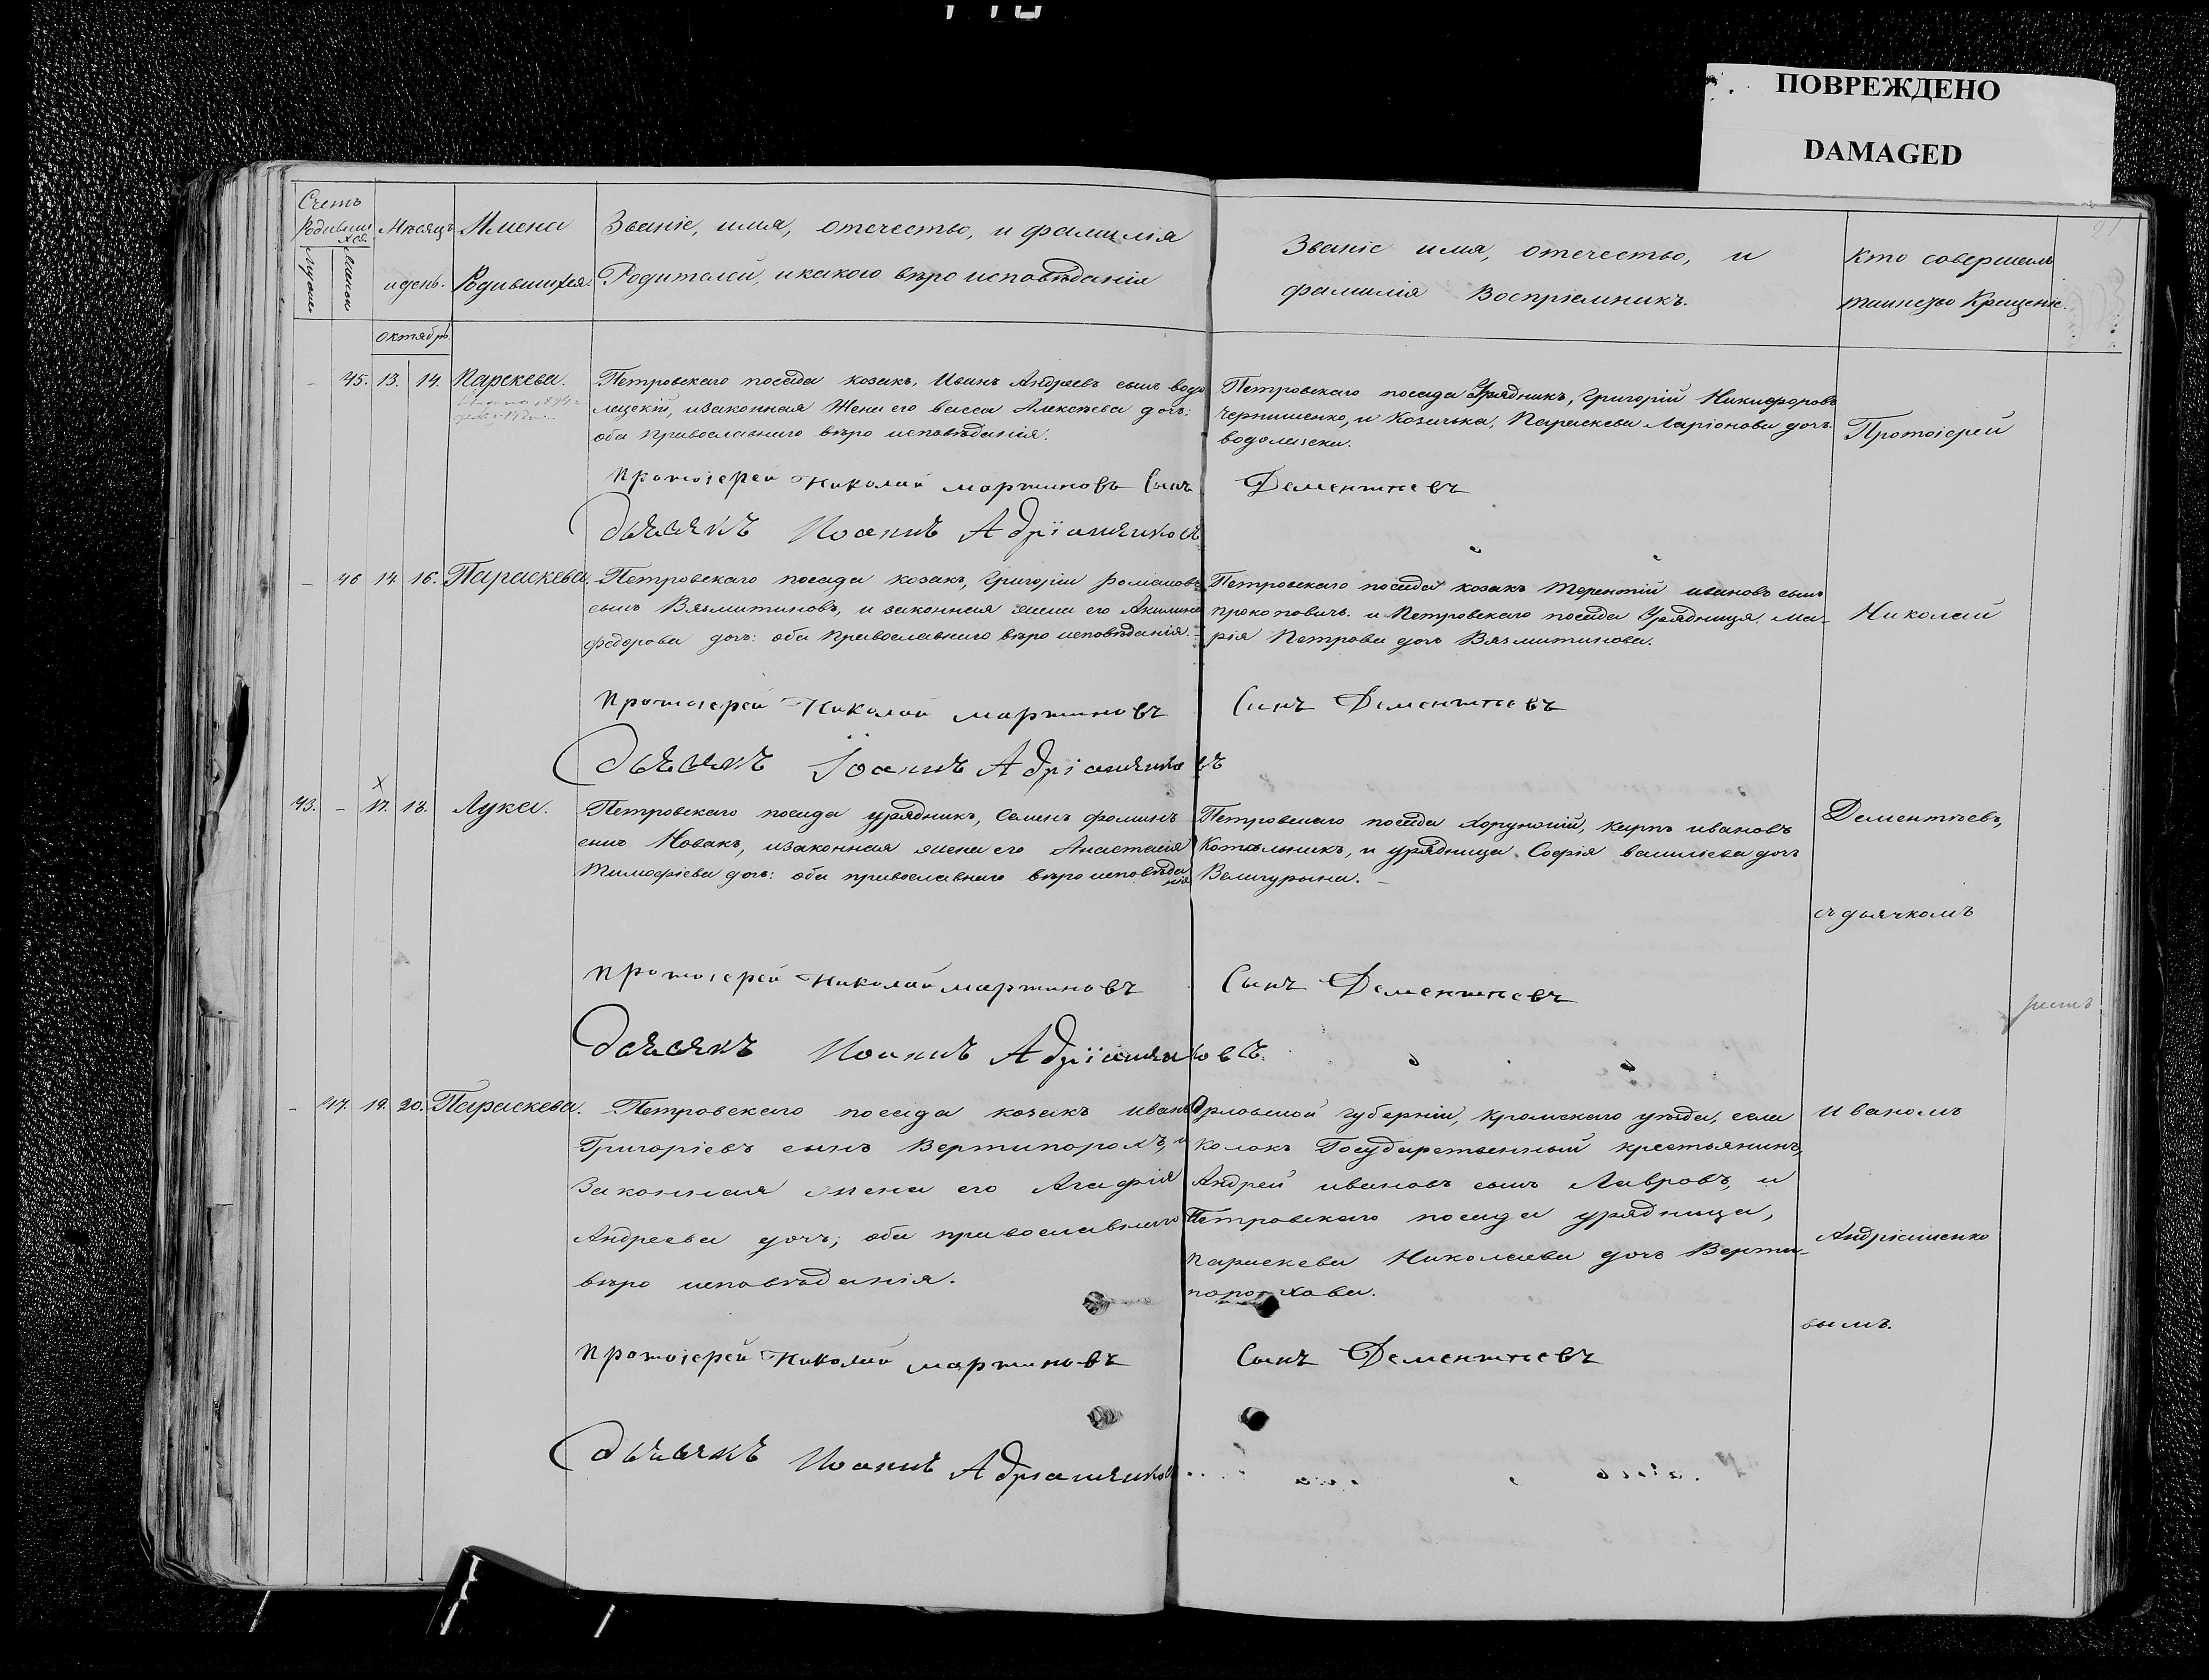 ПОВРЕЖДЕНО
DAMAGED
Счетъ
Родивших
хся
Мѣсяцъ
и день.
Имена
Родившихся.
Званіе, имя, отечество, и фамилія
Родителей, и какого вѣро исповѣданія
Званіе имя, отечество, и
фамилія Воспріемникъ.
Кто совершалъ
таинство Крещенія.
Октябрь.
45. 13. 14. Параскева.
Петровскаго посада козакъ, Иванъ Андреевъ сынъ водо
лецкій, и законная Жена его васса Алексѣева дочь:
оба православнаго вѣро исповѣданія.
Петровскаго посада Урядникъ, Григорій Никифоровъ
Чернышенко, и Козачька, Параскева Ларіонова дочь
водолацка.
Протоіерей
Протоіерей Николай мартиновъ Сынъ Дементіевъ
дьячекъ Иоаннъ Адріаненковъ
46 14 16. Параскева.
Петровскаго посада козакъ, Григорій романовъ
сынъ Вязмитиновъ, и законная жена его Акилина
федорова дочь: оба Православнаго вѣро исповѣданія.
Петровскаго посада козакъ терентій ивановъ сынъ
прокоповичъ. и Петровскаго посада Урядница. Ма-
рія Петрова дочь Вязмитинова.
Николай
Протоіерей Николай мартиновъ Сынъ Дементіевъ
дьячекъ Іоаннъ Адріаненковъ
43. – 17. 18. Лука.
Петровскаго посада урядникъ, Семенъ фоминъ
сынъ Новакъ, и законная жена его Анастасія
Тимофіева дочь: оба православнаго вѣро исповѣда
нія
Петровскаго посада хорунжій, карпъ ивановъ
Котельникъ, и урядница София василіева дочь
Величурына.
Дементіевъ,
съ дьячкомъ
Протоіерей Николай мартиновъ Сынъ Дементіевъ
дьячекъ Иоаннъ Адріаненковъ.
47. 19. 20. Параскева.
Петровскаго посада козакъ иванъ
Григоріевъ сынъ Вертипорохъ, и
Законная жена его Агафія
Андреева дочь; оба православнаго
вѣро исповѣданія.
Орловской губерніи, Кромскаго уѣзда, села
Колокъ Государственный крестьянинъ,
Андрей ивановъ сынъ Лавровъ, и
Петровскаго посада урядница,
Параскева Николаева дочь Верти-
порохова.
Иваномъ
Андріаненко
вымъ.
Протоіерей Николай мартиновъ Сынъ Дементіевъ
дьячекъ Иоаннъ Адріаненков